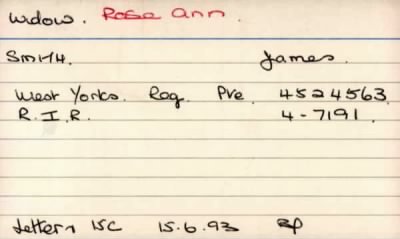 Widow. Rose Ann.
Smith. James.
West Yorks. Reg. Pve 4524563.
R.I.R. 4-7191.
Letter 15C 15.6.93